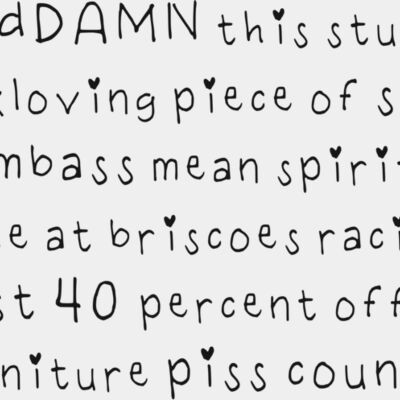 dDAMN this stu
loving piece of s
mbass mean spiri
e at briscoes raci
st 40 percent off
niture piss coun